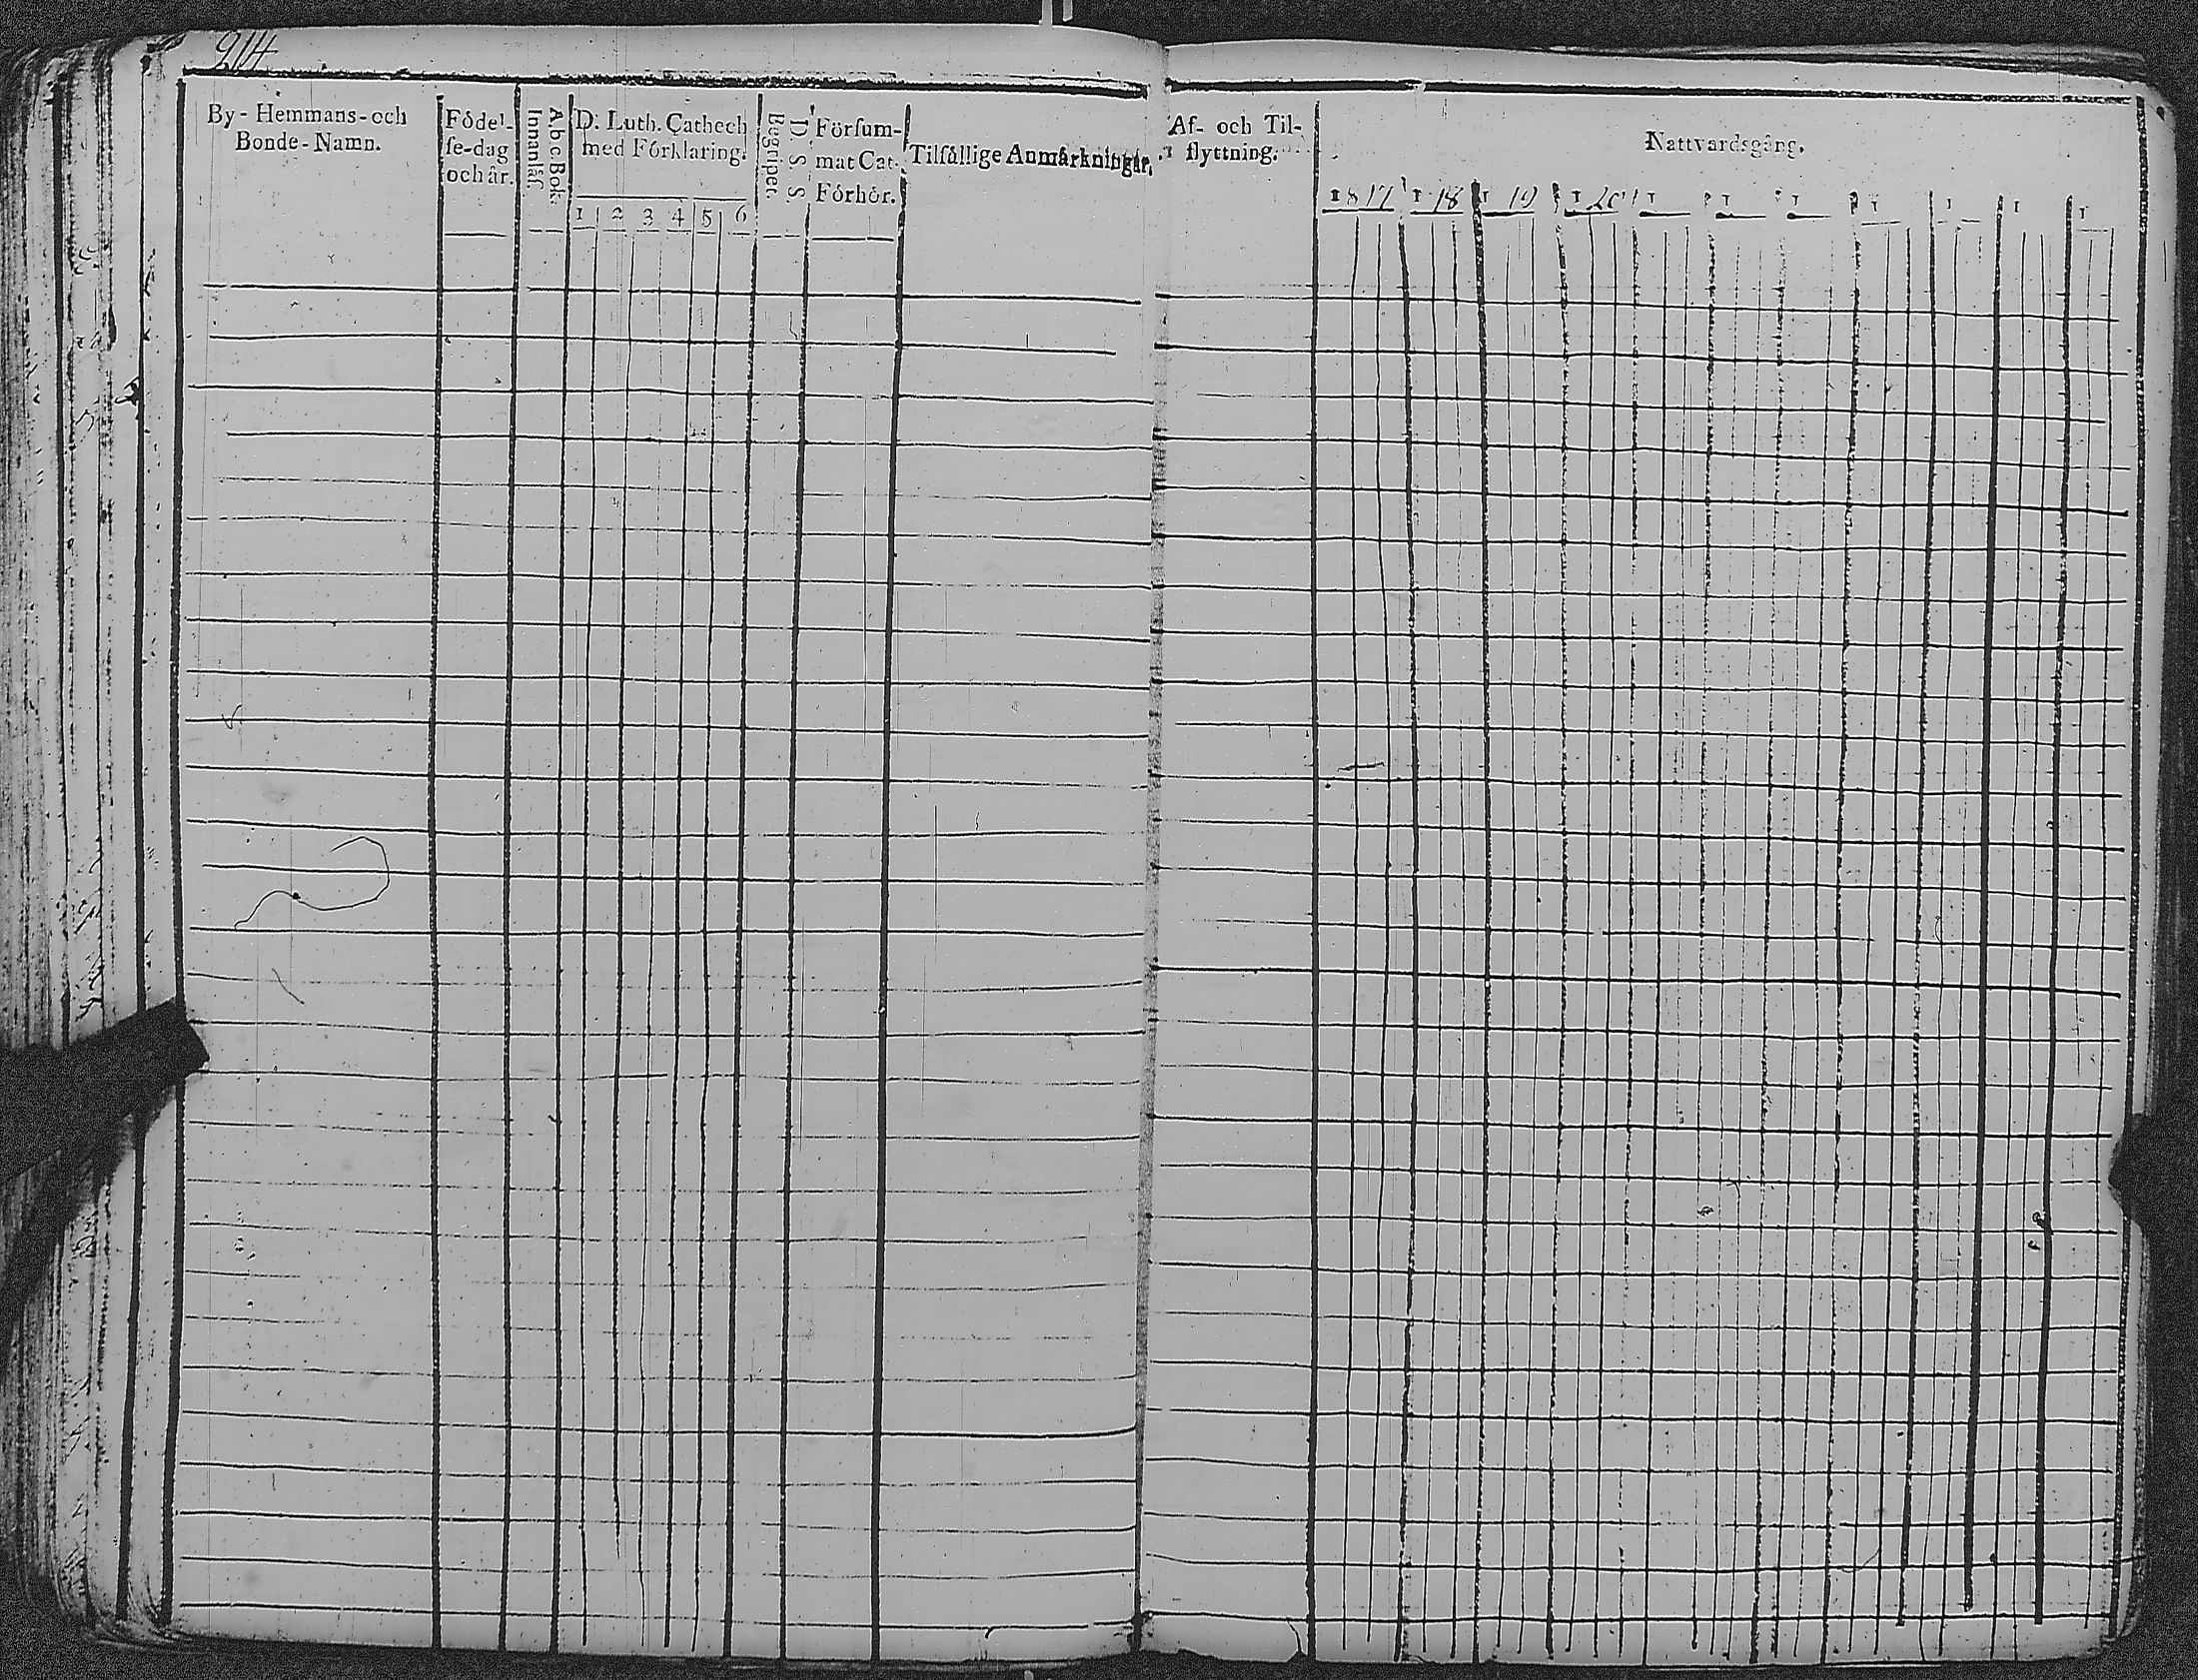 214
By- Hemmans- och
Bonde- Namn.
Födel-
ſe-dag
och år.
Abc Bok.
Innanläſ.
D. Luth. Cathech
med Förklaring.
1 2 3 4 5 6
D. S. S.
Begriper.
Förſum-
mat Cat.
Förhör.
Tilfällige Anmärkningar.
Af- och Til-
flyttning.
Nattvardsgång.
1817 1 18 1 19 1 20 1 1 1 1 1 1 1